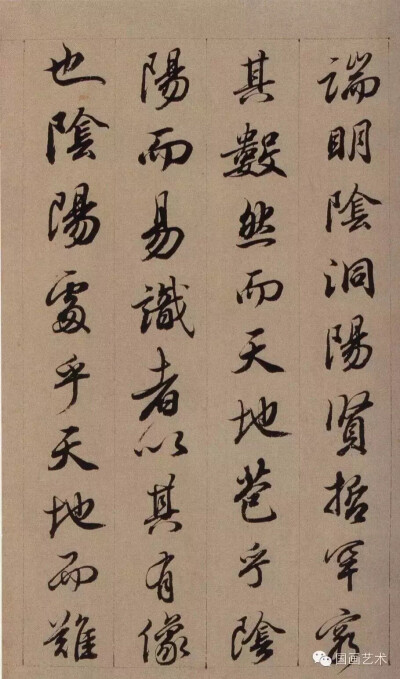 端明陰洞陽賢哲罕窮
其數然而天地苞乎陰
陽而易識者以其有像
也陰陽處乎天地而難
国画艺术